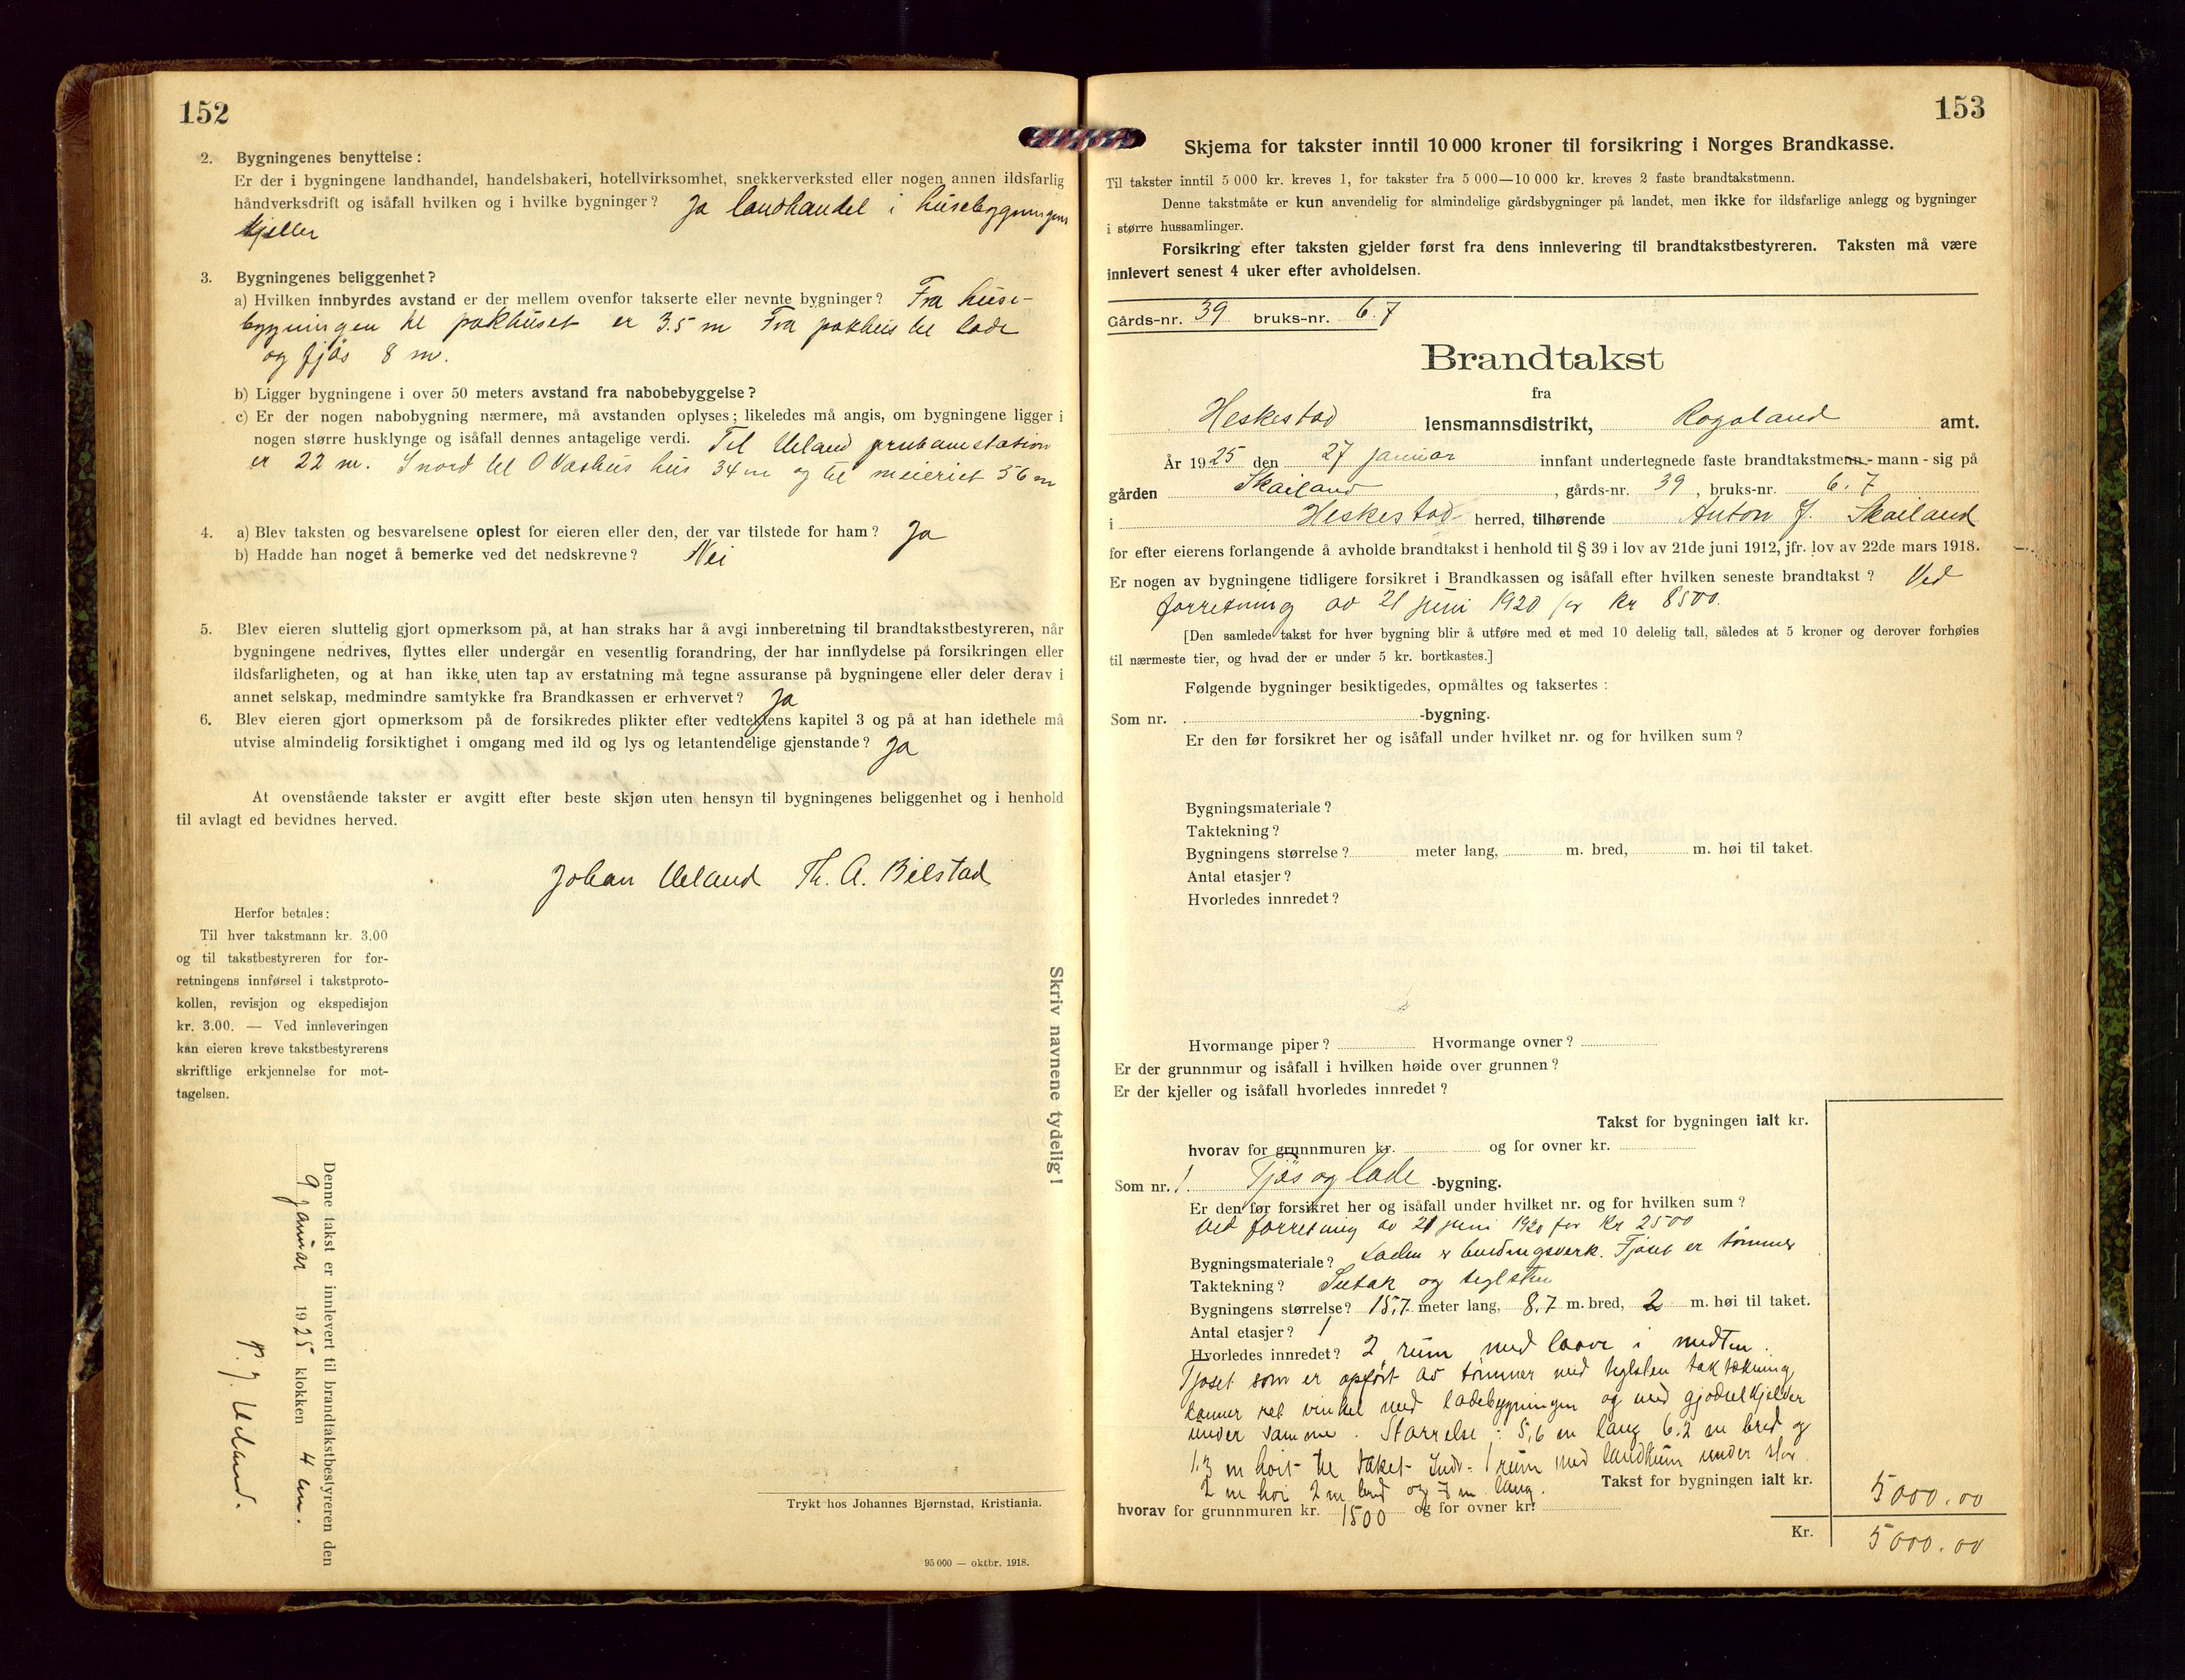 152
2. Bygningenes benyttelse :
Er der i bygningene landhandel, handelsbakeri, hotellvirksomhet, snekkerverksted eller nogen annen ildsfarlig
håndverksdrift og isåfall hvilken og i hvilke bygninger ? Ja landhandel i husebygningens
kjeller
3. Bygningenes beliggenhet ?
a) Hvilken innbyrdes avstand er der mellem ovenfor takserte eller nevnte bygninger ? Fra huse-
bygningen til pakhuset er 3.5 m Fra pakhus til lade
og fjøs 8 m.
b) Ligger bygningene i over 50 meters avstand fra nabobebyggelse ?
c) Er der nogen nabobygning nærmere, må avstanden oplyses ; likeledes må angis, om bygningene ligger i
nogen større husklynge og isåfall dennes antagelige verdi. Til Ueland station
er 22 m. I nord til O Vashus hus 34 m og til meieriet 56 m
4. a) Blev taksten og besvarelsene oplest for eieren eller den, der var tilstede for ham ? Ja
b) Hadde han noget å bemerke ved det nedskrevne ? Nei
5. Blev eieren sluttelig gjort opmerksom på, at han straks har å avgi innberetning til brandtakstbestyreren, når
bygningene nedrives, flyttes eller undergår en vesentlig forandring, der har innflydelse på forsikringen eller
ildsfarligheten, og at han ikke uten tap av erstatning må tegne assuranse på bygningene eller deler derav i
annet selskap, medmindre samtykke fra Brandkassen er erhvervet ? Ja
6. Blev eieren gjort opmerksom på de forsikredes plikter efter vedtektens kapitel 3 og på at han idethele må
utvise almindelig forsiktighet i omgang med ild og lys og letantendelige gjenstande ? Ja
At ovenstående takster er avgitt efter beste skjøn uten hensyn til bygningenes beliggenhet og i henhold
til avlagt ed bevidnes herved.
Johan Ueland Th. A. Bilstad
Herfor betales :
Til hver takstmann kr. 3.00
og til takstbestyreren for for-
retningens innførsel i takstproto-
kollen, revisjon og ekspedisjon
kr. 3.00. — Ved innleveringen
kan eieren kreve takstbestyrerens
skriftlige erkjennelse for mot-
tagelsen.
Skriv navnene tydelig !
Denne takst er innlevert til brandtakstbestyreren den
9 januar 1925 klokken 4 em.
P. J. Ueland.
Trykt hos Johannes Bjørnstad, Kristiania.
95 000 — oktbr. 1918.
153
Skjema for takster inntil 10 000 kroner til forsikring i Norges Brandkasse.
Til takster inntil 5 000 kr. kreves 1, for takster fra 5 000—10 000 kr. kreves 2 faste brandtakstmenn.
Denne takstmåte er kun anvendelig for almindelige gårdsbygninger på landet, men ikke for ildsfarlige anlegg og bygninger
i større hussamlinger.
Forsikring efter taksten gjelder først fra dens innlevering til brandtakstbestyreren. Taksten må være
innlevert senest 4 uker efter avholdelsen.
Gårds-nr. 39 bruks-nr. 6.7
Brandtakst
fra
Heskestad lensmannsdistrikt, Rogaland amt.
År 1925 den 27 januar innfant undertegnede faste brandtakstmenn - mann - sig på
gården Skailand , gårds-nr. 39 , bruks-nr. 6. 7
i Heskestad herred, tilhørende Anton J. Skailand
for efter eierens forlangende å avholde brandtakst i henhold til § 39 i lov av 21de juni 1912, jfr. lov av 22de mars 1918.
Er nogen av bygningene tidligere forsikret i Brandkassen og isåfall efter hvilken seneste brandtakst ? Ved
forretning av 21 juni 1920 for kr 8500.
[Den samlede takst for hver bygning blir å utføre med et med 10 delelig tall, således at 5 kroner og derover forhøies
til nærmeste tier, og hvad der er under 5 kr. bortkastes.]
Følgende bygninger besiktigedes, opmåltes og taksertes :
Som nr. -bygning.
Er den før forsikret her og isåfall under hvilket nr. og for hvilken sum ?
Bygningsmateriale ?
Taktekning ?
Bygningens størrelse ? meter lang, m. bred, m. høi til taket.
Antal etasjer ?
Hvorledes innredet ?
Hvormange piper ? Hvormange ovner ?
Er der grunnmur og isåfall i hvilken høide over grunnen ?
Er der kjeller og isåfall hvorledes innredet ?
Takst for bygningen ialt kr.
hvorav for grunnmuren kr. og for ovner kr.
Som nr. 1. Fjøs og lade -bygning.
Er den før forsikret her og isåfall under hvilket nr. og for hvilken sum ?
Ved forretning av 21 juni 1920 for kr 2500
Bygningsmateriale ? Laden er bindingsverk. Fjøset er tømmer
Taktekning ? Sutak og teglsten
Bygningens størrelse ? 15,7 meter lang, 8,7 m. bred, 2 m. høi til taket.
Antal etasjer ? 1
Hvorledes innredet ? 2 rum med laave i midten.
Fjøset som er opført av tømmer med teglsten taktækning
danner ret vinkel med ladebygningen og med gjødselkjelder
under samme. Størrelse : 5,6 m lang 6.2 m bred og
1.3 m høit til taket Indr. 1 rum med under
2 m høi 2 m bred og 7 m lang. Takst for bygningen ialt kr. 5000.00
hvorav for grunnmuren kr. 1500 og for ovner kr.
Kr. 5000.00